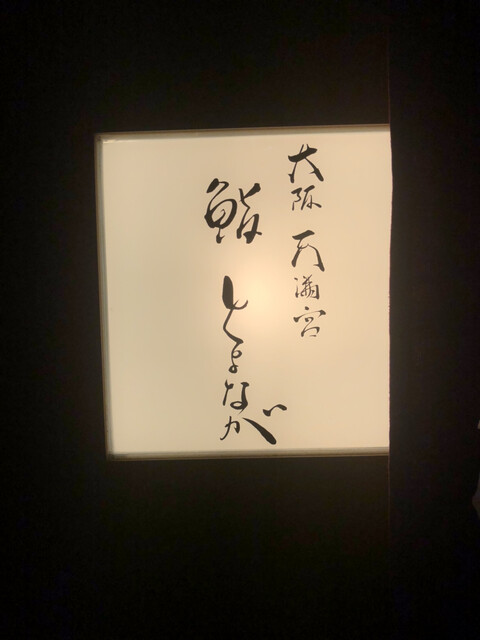 大阪 天満宮
鮨 ともなが